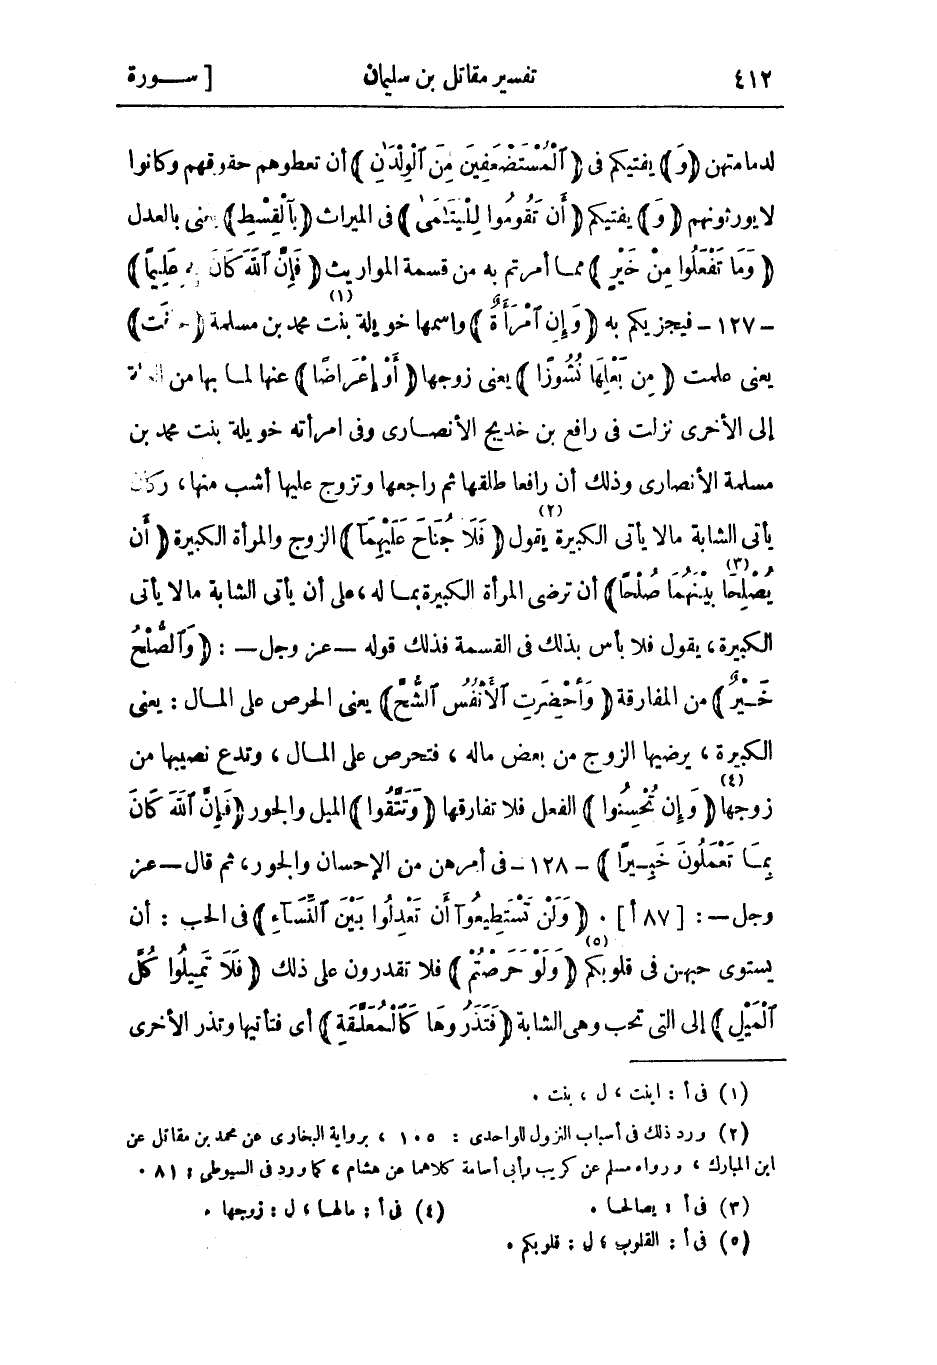 ٤١٢ تفسير مقاتل بن سليمان [ ســورة
لدمامتهن ﴿وَ﴾ يفتيكم فى ﴿ٱلْمُسْتَضْعَفِينَ مِنَ ٱلْوِلْدَٰنِ﴾ أن تعطوهم حقوقهم وكانوا
لا يورثونهم ﴿وَ﴾ يفتيكم ﴿أَن تَقُومُوا لِلْيَتَامَىٰ﴾ فى الميراث ﴿بِٱلْقِسْطِ﴾ يعنى بالعدل
﴿وَمَا تَفْعَلُوا مِنْ خَيْرٍ﴾ ممـا أمرتم به من قسمة المواريث ﴿فَإِنَّ ٱللَّهَ كَانَ بِهِ عَلِيمًا﴾
- ١٢٧ - فيجزيكم به ﴿وَإِنِ ٱمْرَأَةٌ﴾ واسمها خويلة (١) بنت محمد بن مسلمة ﴿خافت﴾
يعنى علمت ﴿مِن بَعْلِهَا نُشُوزًا﴾ يعنى زوجها ﴿أَوْ إِعْرَاضًا﴾ عنها لمـا بها من
إلى الأخرى نزلت فى رافع بن خديج الأنصـارى وفى امرأته خويلة بنت محمد بن
مسلمة الأنصارى وذلك أن رافعا طلقها ثم راجعها وتزوج عليها أشب منها ، وكان
يأتى الشابة مالا يأتى الكبيرة (٢) يقول ﴿فَلَا جُنَاحَ عَلَيْهِمَآ﴾ الزوج والمرأة الكبيرة ﴿أَن
يُصْلِحَا (٣) بَيْنَهُمَا صُلْحًا﴾ أن ترضى المرأة الكبيرة بمـا له ، على أن يأتى الشابة مالا يأتى
الكبيرة ، يقول فلا بأس بذلك فى القسمة فذلك قوله — عز وجل — : ﴿وَٱلصُّلْحُ
خَــيْرٌ﴾ من المفارقة ﴿وَأُحْضِرَتِ ٱلْأَنفُسُ ٱلشُّحَّ﴾ يعنى الحرص على المـال : يعنى
الكبيرة ، يرضيها الزوج من بعض ماله ، فتحرص على المـال ، وتدع نصيبها من
زوجها (٤) ﴿وَإِن تُحْسِنُوا﴾ الفعل فلا تفارقها ﴿وَتَتَّقُوا﴾ الميل والجور ﴿فَإِنَّ ٱللَّهَ كَانَ
بِمَـا تَعْمَلُونَ خَبِــيرًا﴾ - ١٢٨ - فى أمرهن من الإحسان والجور ، ثم قال — عز
وجل — : [ ٨٧ أ ] . ﴿وَلَنْ تَسْتَطِيعُوٓا أَن تَعْدِلُوا بَيْنَ ٱلنِّسَآءِ﴾ فى الحب : أن
يستوى حبهن فى قلوبكم (٥) ﴿وَلَوْ حَرَصْتُمْ﴾ فلا تقدرون على ذلك ﴿فَلَا تَمِيلُوا كُلَّ
ٱلْمَيْلِ﴾ إلى التى تحب وهى الشابة ﴿فَتَذَرُوهَا كَٱلْمُعَلَّقَةِ﴾ أى فتأتيها وتذر الأخرى
(١) فى أ : ابنت ، ل ، بنت .
(٢) ورد ذلك فى أسباب النزول للواحدى : ١٠٥ ، برواية البخارى عن محمد بن مقاتل عن
ابن المبارك ، ورواه مسلم عن كريب وأبى أسامة كلاهما عن هشام ، كما ورد فى السيوطى : ٨١ .
(٣) فى أ : يصالحا . (٤) فى أ : مالهـا ، ل : زوجها .
(٥) فى أ : القلوب ، ل : قلوبكم .